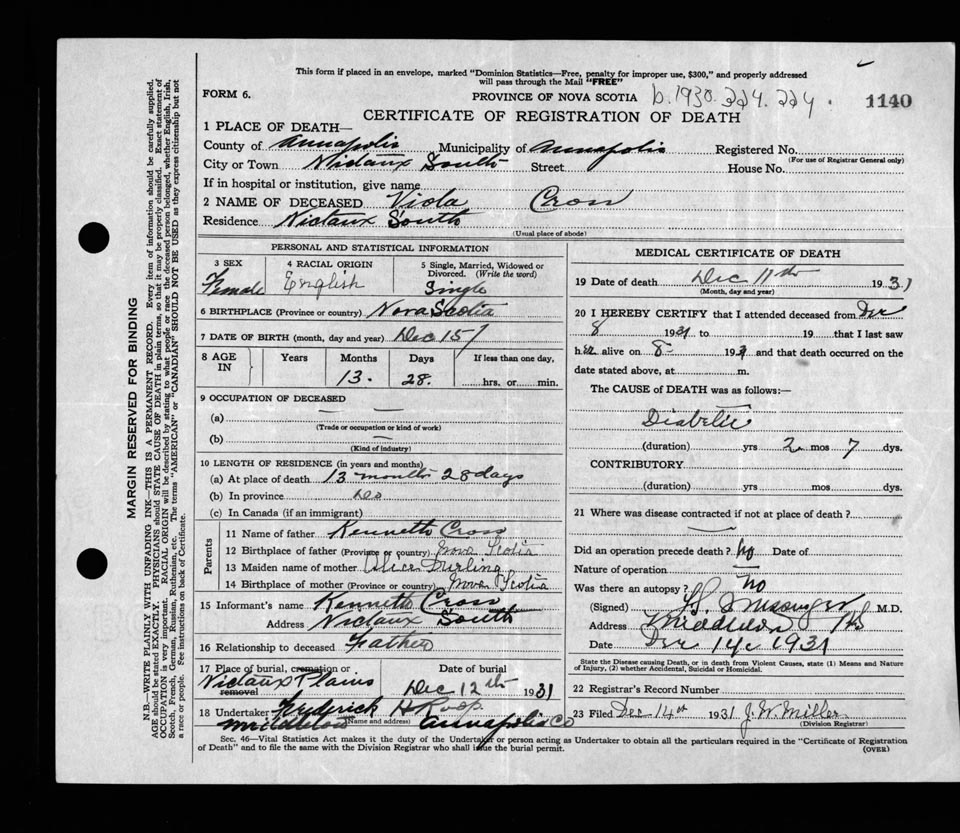 This form if placed in an envelope, marked "Dominion Statistics—Free, penalty for improper use, $300," and properly addressed
will pass through the Mail "FREE"
FORM 6.
PROVINCE OF NOVA SCOTIA b. 1930. 224. 224. 1140
CERTIFICATE OF REGISTRATION OF DEATH
1 PLACE OF DEATH—
County of Annapolis Municipality of Annapolis Registered No.
(For use of Registrar General only)
City or Town Nictaux South Street House No.
If in hospital or institution, give name
2 NAME OF DECEASED Viola Cross
Residence Nictaux South
(Usual place of abode)
PERSONAL AND STATISTICAL INFORMATION
3 SEX
Female
4 RACIAL ORIGIN
English
5 Single, Married, Widowed or
Divorced. (Write the word)
Single
6 BIRTHPLACE (Province or country) Nova Scotia
7 DATE OF BIRTH (month, day and year) Dec 15
8 AGE
IN
Years
Months
13.
Days
28.
If less than one day,
hrs. or min.
9 OCCUPATION OF DECEASED
(a) — —
(Trade or occupation or kind of work)
(b) —
(Kind of industry)
10 LENGTH OF RESIDENCE (in years and months)
(a) At place of death 13 months 28 days
(b) In province Do
(c) In Canada (if an immigrant)
Parents
11 Name of father Kenneth Cross
12 Birthplace of father (Province or country) Nova Scotia
13 Maiden name of mother Alice Durling
14 Birthplace of mother (Province or country) Nova Scotia
15 Informant's name Kenneth Cross
Address Nictaux South
16 Relationship to deceased Father
17 Place of burial, cremation or
removal
Nictaux Plains
Date of burial
Dec 12th 1931
18 Undertaker Frederick H Roop
(Name and address)
Middleton Annapolis Co
MEDICAL CERTIFICATE OF DEATH
19 Date of death Dec 11th 1931
(Month, day and year)
20 I HEREBY CERTIFY that I attended deceased from Dec
8 1931 to 19 that I last saw
her alive on 8 - 193 and that death occurred on the
date stated above, at m.
The CAUSE of DEATH was as follows:—
Diabetes
(duration) yrs 2 mos 7 dys.
CONTRIBUTORY
(duration) yrs. mos. dys.
21 Where was disease contracted if not at place of death?
Did an operation precede death? No Date of
Nature of operation —
Was there an autopsy? No
(Signed) Messenger M.D.
Address Middleton NS
Date Dec 14 1931
State the Disease causing Death, or in death from Violent Causes, state (1) Means and Nature
of Injury, (2) whether Accidental, Suicidal or Homicidal.
22 Registrar's Record Number
23 Filed Dec 14th 1931 J. W. Miller
(Division Registrar)
Sec. 46—Vital Statistics Act makes it the duty of the Undertaker or person acting as Undertaker to obtain all the particulars required in the "Certificate of Registration
of Death" and to file the same with the Division Registrar who shall issue the burial permit.
(OVER)
MARGIN RESERVED FOR BINDING
N.B.—WRITE PLAINLY WITH UNFADING INK—THIS IS A PERMANENT RECORD. Every item of information should be carefully supplied.
AGE should be stated EXACTLY. PHYSICIANS should STATE CAUSE OF DEATH in plain terms, so that it may be properly classified. Exact statement of
OCCUPATION is very important. RACIAL ORIGIN will be described by stating to what people or race the deceased person belonged, whether English, Irish,
Scotch, French, German, Russian, Ruthenian, etc. The terms "AMERICAN" or "CANADIAN" SHOULD NOT BE USED as they express citizenship but not
a race or people. See instructions on back of Certificate.